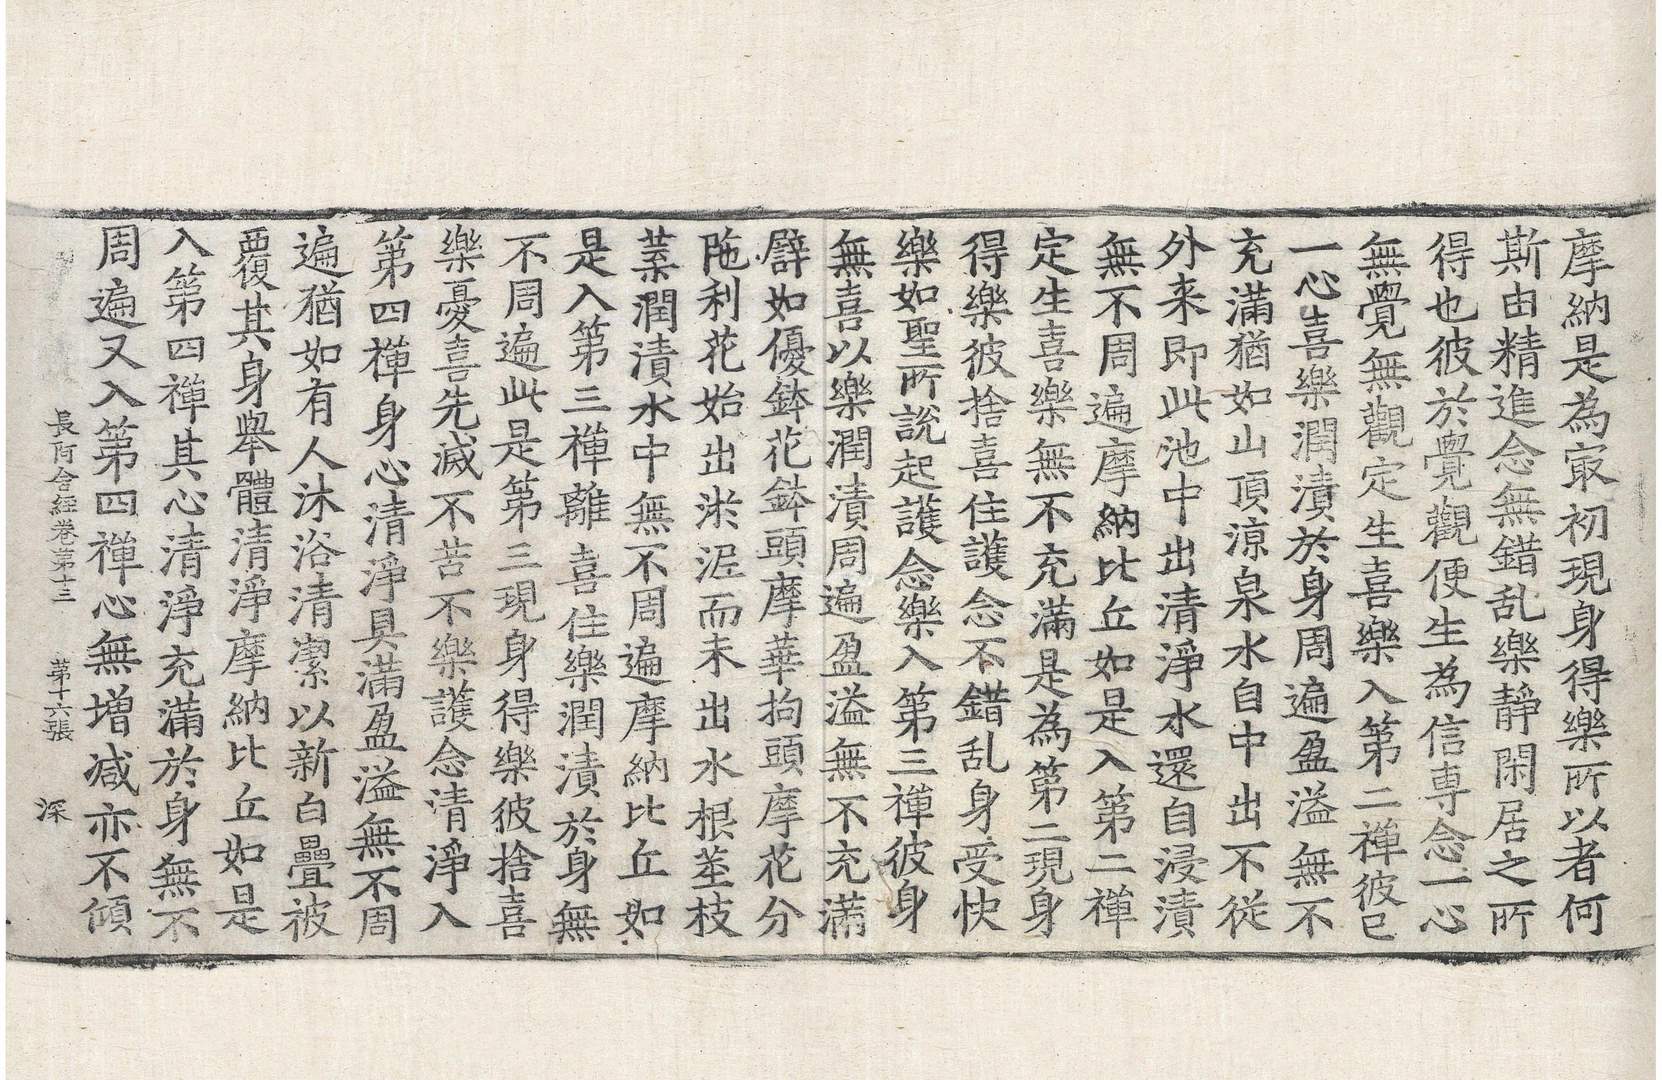 摩納是為㝡初現身得樂所以者何
斯由精進念無錯乱樂靜閑居之所
得也彼於覺觀便生為信専念一心
無覺無觀定生喜樂入第二禪彼已
一心喜樂潤漬於身周遍盈溢無不
充滿猶如山頂涼泉水自中出不從
外来即此池中出清淨水還自浸漬
無不周遍摩納比丘如是入第二禪
定生喜樂無不充滿是為第二現身
得樂彼捨喜住護念不錯乱身受快
樂如聖所說起護念樂入第三禪彼身
無喜以樂潤漬周遍盈溢無不充滿
譬如優鉢花鉢頭摩華拘頭摩花分
陁利花始出淤泥而未出水根莖枝
葉潤漬水中無不周遍摩納比丘如
是入第三禪離喜住樂潤漬於身無
不周遍此是第三現身得樂彼捨喜
樂憂喜先滅不苦不樂護念清淨入
第四禪身心清淨具滿盈溢無不周
遍猶如有人沐浴清潔以新白疊被
覆其身舉體清淨摩納比丘如是
入第四禪其心清淨充滿於身無不
周遍又入第四禪心無增減亦不傾
長阿含經卷第十三 第十六張 深